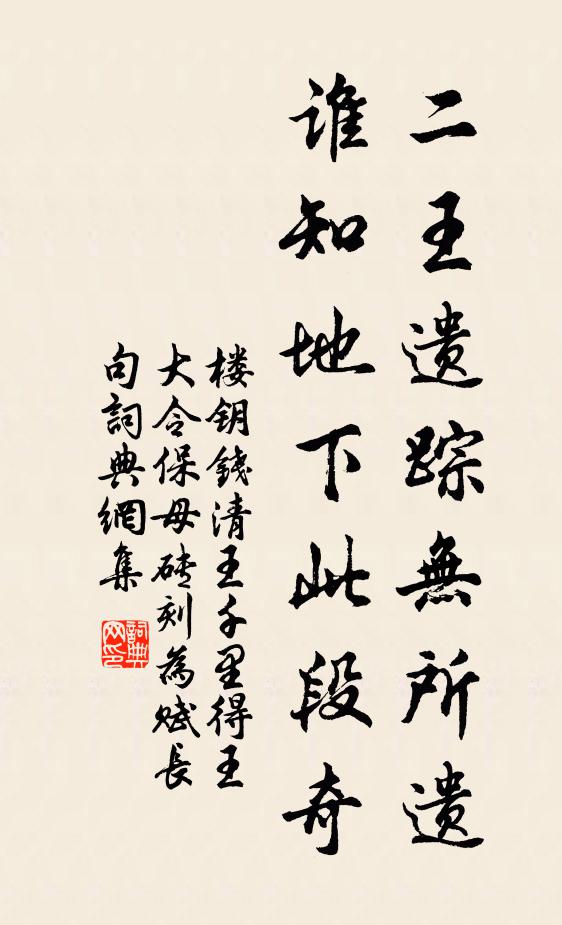 二王遗踪無所遗
谁知地下此段奇
楼钥錢清王千里得王
大令保母砖刻為赋長
句詞典網集
詞典
网印